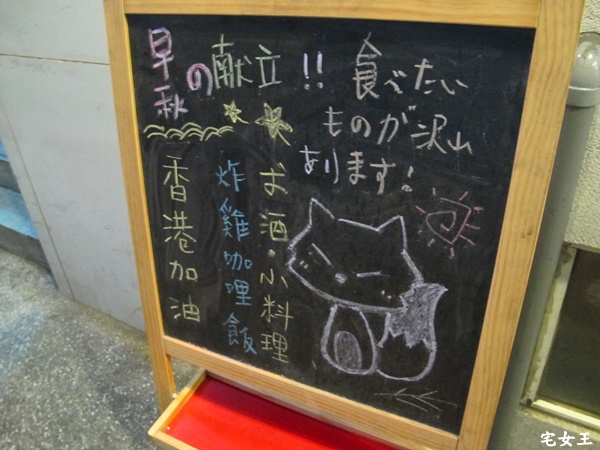 早秋の献立!!
食べたい
ものが沢山
あります!
お酒・小料理
炸雞咖哩飯
香港加油
宅女王